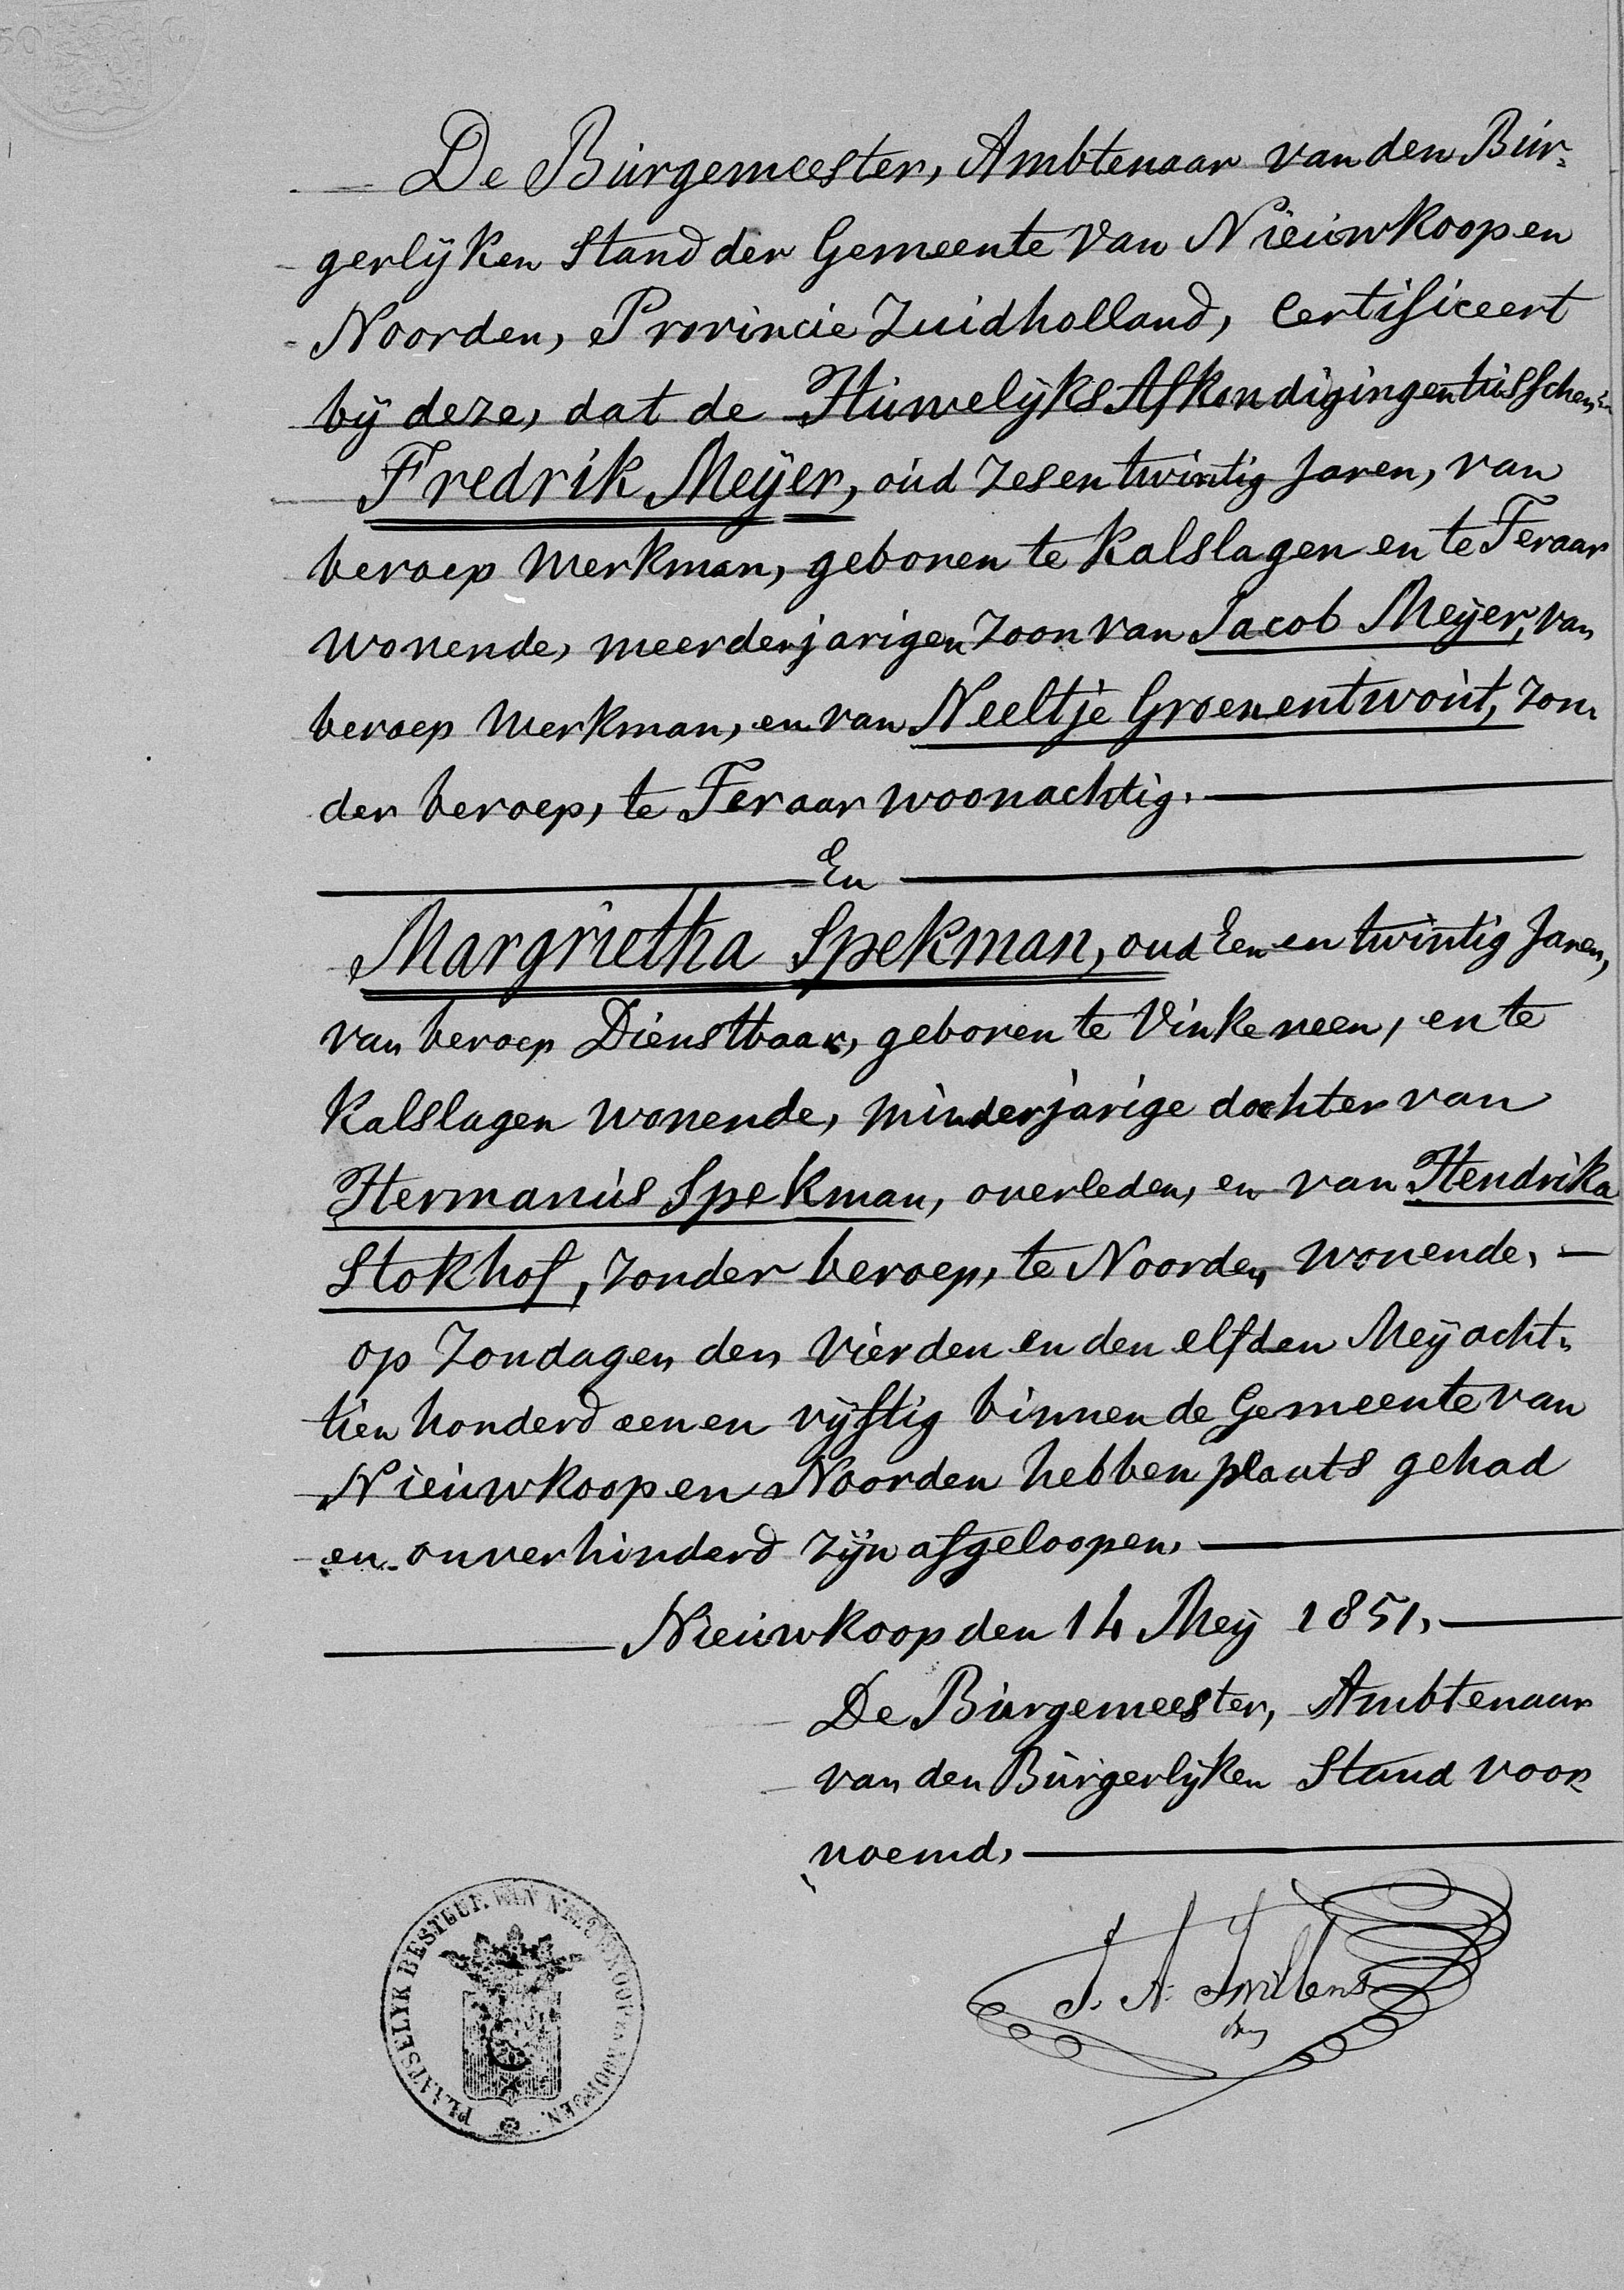 De Burgemeester, Ambtenaar van den Bur-
gerlijken Stand der Gemeente van Nieuwkoop en
Noorden, Provincie Zuidholland, Certificeert
bij deze, dat de Huwelijks Afkondigingen tusschen
Fredrik Meijer, oud Zesentwintig Jaren, van
beroep Werkman, geboren te Kalslagen en te Teraar
wonende, meerderjarigen Zoon van Jacob Meijer, van
beroep Werkman, en van Neeltje Groenentwout, Zon-
der beroep, te Teraar woonachtig.
En
Margrietha Spekman, oud Een en twintig Jaren,
van beroep Dienstbaar, geboren te Vinkeveen, en te
Kalslagen wonende, minderjarige dochter van
Hermanus Spekman, overleden, en van Hendrika
Stokhof, Zonder beroep, te Noorden wonende,
op Zondagen den Vierden en den elfden Meij acht-
tien honderd een en vijftig binnen de Gemeente van
Nieuwkoop en Noorden hebben plaats gehad
en onverhinderd zijn afgeloopen.
Nieuwkoop den 14 Meij 1851.
De Burgemeester, Ambtenaar
van den Burgerlijken Stand voor-
noemd,
PLAATSELYK BESTUUR VAN NIEUWKOOP EN NOORDEN